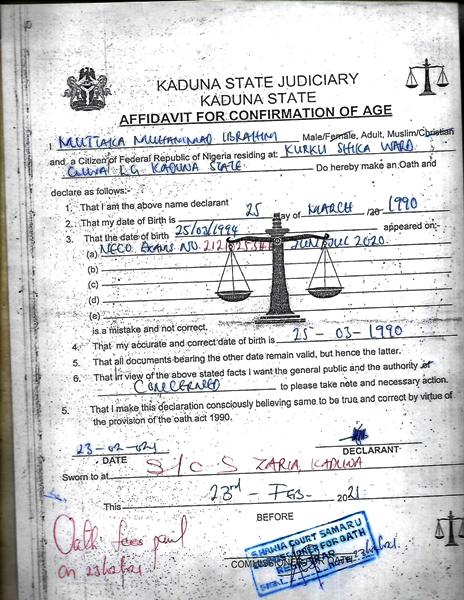 KADUNA STATE JUDICIARY
KADUNA STATE
AFFIDAVIT FOR CONFIRMATION OF AGE
I MUTTAKA MUHAMMAD IBRAHIM Male/Female, Adult, Muslim/Christian
and a Citizen of Federal Republic of Nigeria residing at: KURKU SHIKA WARD
GIWA L.G KADUNA STATE Do hereby make an Oath and
declare as follows:-
1. That I am the above name declarant
2. That my date of Birth is 25 day of MARCH /20 1990
3. That the date of birth 25/03/1994 appeared on:-
(a) NECO EXAMS NO. JUN/JUL 2020
(b)
(c)
(d)
(e)
is a mistake and not correct.
4. That my accurate and correct date of birth is 25-03-1990
5. That all documents bearing the other date remain valid, but hence the latter.
6. That in view of the above stated facts I want the general public and the authority of
CONCERNED to please take note and necessary action.
5. That I make this declaration consciously believing same to be true and correct by virtue of
the provision of the oath act 1990.
23-02-021
DATE DECLARANT
Sworn to at S/C S ZARIA, KADUNA
This 23rd - FEB- 2021
BEFORE
SHARIA COURT SAMARU
FOR OATH
REGISTRAR
DATE
COMMISSIONER
Oath fees paid
on